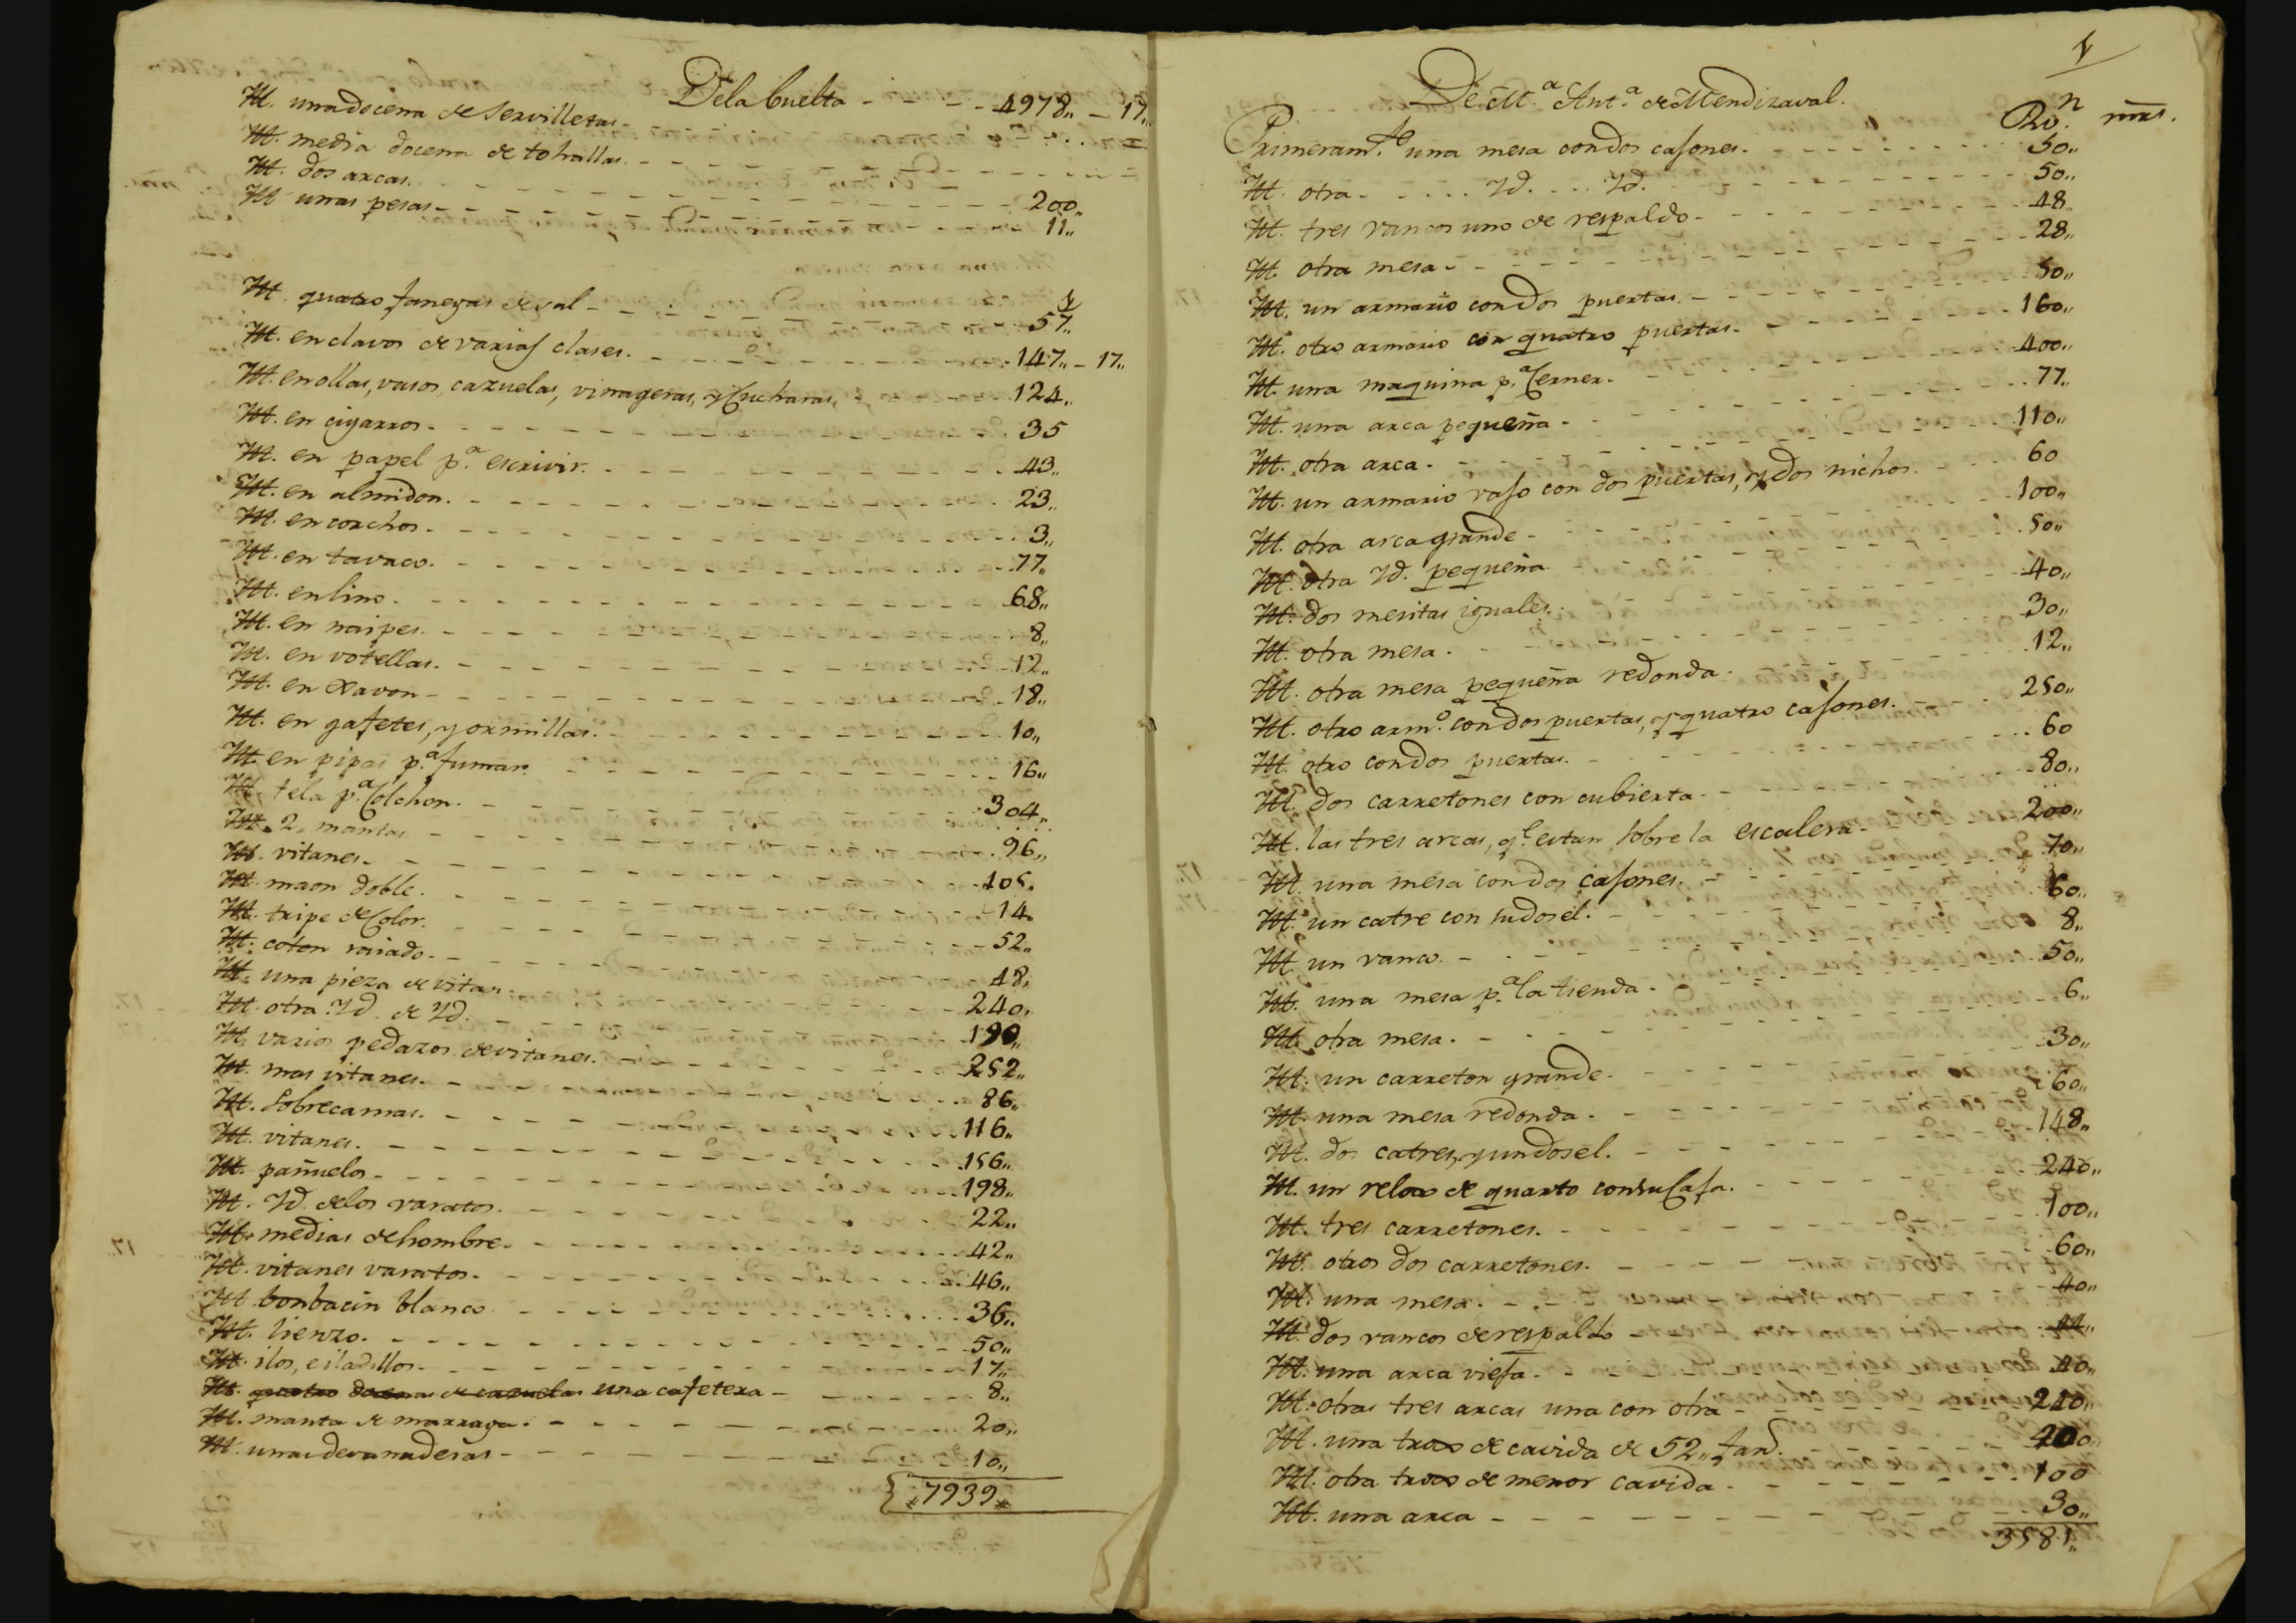 De la buelta - - - - 4978,, - 17,,
Yt. una docena de Servilletas.
Yt. media docena de tohallas. - - - -
Yt. dos arcas. - - - - 200,,
Yt. unas pesas - - - - 11,,
Yt. quatro fanegas de sal - - - - 57,,
Yt. en clavos de varias clases. - - - - 147,, - 17,,
Yt. en ollas, vasos, cazuelas, vinageras, y Cucharas, 124,,
Yt. en cigarros. - - - - 35
Yt. en papel p.ª escrivir. - - - - 43,,
Yt. en almidon. - - - - 23,,
Yt. en corchos. - - - - 3,,
Yt. en tavaco. - - - - 77,,
Yt. en lino. - - - - 68,,
Yt. en naipes. - - - - 8,,
Yt. en votellas. - - - - 12,,
Yt. en Xavon - - - - 18,,
Yt. en gafetes, y ormillas. - - - - 10,,
Yt. en pipas p.ª fumar. - - - - 16,,
Yt. tela p.ª Colchon. - - - - 304,,
Yt. 2,, mantas - - - - 96,,
Yt. vitanes. - - - - 105,,
Yt. maon doble. - - - - 14,,
Yt. tripe de Color. - - - - 52,,
Yt. coton raiado. - - - - 48,,
Yt. una pieza de vitan - - - - 240,,
Yt. otra Yd. de Yd. - - - - 190,,
Yt. varios pedazos de vitanes. - - - - 252,,
Yt. mas vitanes. - - - - 86,,
Yt. Sobrecamas. - - - - 116,,
Yt. vitanes. - - - - 156,,
Yt. pañuelos - - - - 198,,
Yt. Yd. de los varatos. - - - - 22,,
Yt. medias de hombre. - - - - 42,,
Yt. vitanes varatos. - - - - 46,,
Yt. bonbacin blanco - - - - 36,,
Yt. lienzo. - - - - 50,,
Yt. ilos, e iladillos. - - - - 17,,
Yt. quatro docenas de cazuelas una cafetera - - - - 8,,
Yt. manta de marraga. - - - - 20,,
Yt. unas devanaderas - - - - 10,,
7939,,
De M.ª Ant.ª de Mendizaval.
Rv.n mrs.
Primeram.te una mesa con dos cajones. - - - - 50,,
Yt. otra - - - - Yd. - - - Yd. - - - - 50,,
Yt. tres vancos uno de respaldo - - - - 48
Yt. otra mesa - - - - 28,,
Yt. un armario con dos puertas. - - - - 50,,
Yt. otro armario con quatro puertas. - - - - 160,,
Yt. una maquina p.ª Cerner. - - - - 400,,
Yt. una arca pequeña - - - - 77,,
Yt. otra arca. - - - - 110,,
Yt. un armario vajo con dos puertas, y dos nichos. - - - - 60
Yt. otra arca grande - - - - 100,,
Yt. otra Yd. pequeña - - - - 50,,
Yt. dos mesitas iguales. - - - - 40,,
Yt. otra mesa. - - - - 30,,
Yt. otra mesa pequeña redonda. - - - - 12,,
Yt. otro arm.º con dos puertas, y quatro cajones. - - - - 250,,
Yt. otro con dos puertas. - - - - 60
Yt. dos carretones con cubierta - - - - 80,,
Yt. las tres arcas, q.e estan sobre la escalera - - - - 200,,
Yt. una mesa con dos cajones. - - - - 70,,
Yt. un catre con su dosel. - - - - 60,,
Yt. un vanco. - - - - 8,,
Yt. una mesa p.ª la tienda. - - - - 50,,
Yt. otra mesa. - - - - 6,,
Yt. un carreton grande. - - - - 30,,
Yt. una mesa redonda. - - - - 60,,
Yt. dos catres, y un dosel. - - - - 148,,
Yt. un relox de quarto con su Caja. - - - - 240,,
Yt. tres carretones. - - - - 100,,
Yt. otros dos carretones. - - - - 60,,
Yt. una mesa. - - - - 40,,
Yt. dos vancos de respaldo - - - - 44,,
Yt. una arca vieja. - - - - 40,,
Yt. otras tres arcas una con otra - - - - 210,,
Yt. una trox de cavida de 52,, fan.s
Yt. otra trox de menor cavida. - - - - 100
Yt. una arca - - - - 30,,
3581,,